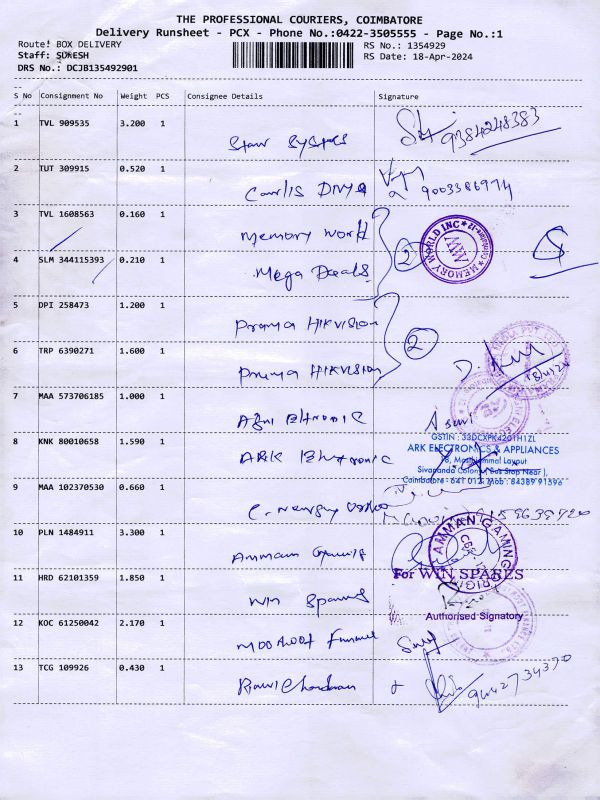 THE PROFESSIONAL COURIERS, COIMBATORE
Delivery Runsheet - PCX - Phone No.:0422-3505555 - Page No.:1
Route: BOX DELIVERY RS No.: 1354929
Staff: SURESH RS Date: 18-Apr-2024
DRS No.: DCJB135492901
S No Consignment No Weight PCS Consignee Details Signature
1 TVL 909535 3.200 1
Star Systems 9384248383
2 TUT 309915 0.520 1
Divya 9003386974
3 TVL 1608563 0.160 1
Memory World
MEMORY WORLD INC * Coimbatore-12 *
MW
4 SLM 344115393 0.210 1
Mega Deals 2
5 DPI 258473 1.200 1
Prama HIKVISION
2
6 TRP 6390271 1.600 1
Prama HIKVISION
7 MAA 573706185 1.000 1
8 KNK 80010658 1.590 1
GSTIN : 33DCXPK4201H1ZL
ARK ELECTRONICS & APPLIANCES
ARK Eltronic
Sivananda Colony ( Bus Stop Near ),
Coimbatore - 641 012. Mob : 84389 91596
9 MAA 102370530 0.660 1
10 PLN 1484911 3.300 1
AMMAN GAMING
Amman
11 HRD 62101359 1.850 1
For WIN SPARES
Win Spares
Authorised Signatory
12 KOC 61250042 2.170 1
13 TCG 109926 0.430 1
Ravi Chandran 9442734370